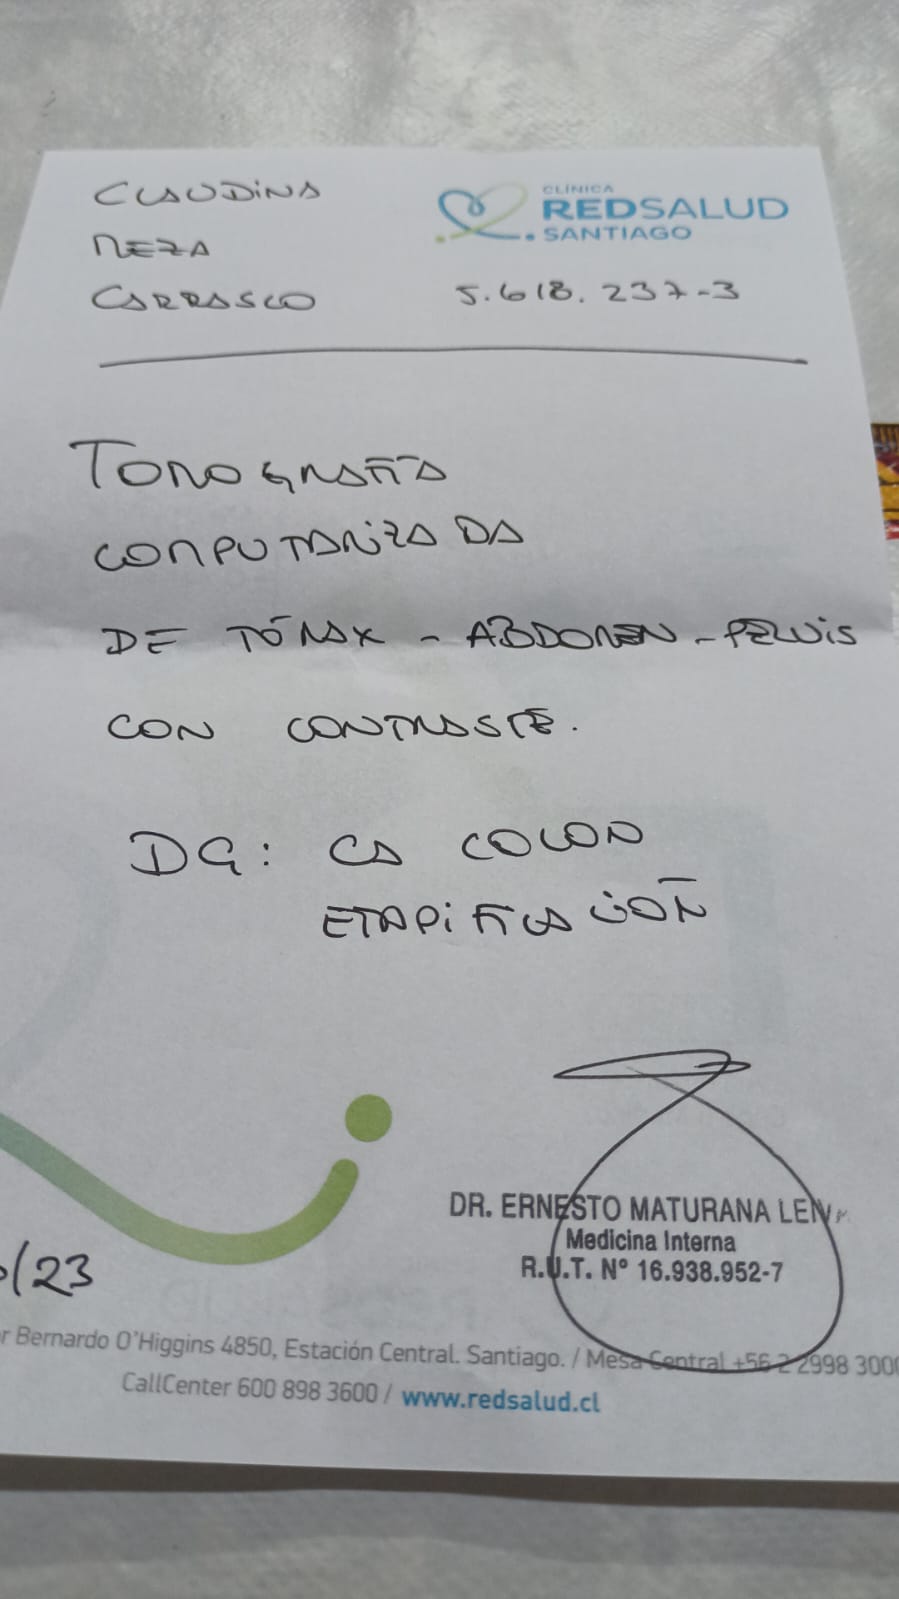 CLAUDINA
CLÍNICA
REDSALUD
SANTIAGO
MEZA
CARRASCO
5.618.237-3
TOMOGRAFÍA
COMPUTARIZADA
DE TÓRAX - ABDOMEN - PELVIS
CON CONTRASTE.
DG: CA COLON
ETAPIFICACIÓN
DR. ERNESTO MATURANA
Medicina Interna
R.U.T. N° 16.938.952-7
/23
r Bernardo O'Higgins 4850, Estación Central. Santiago. / Mesa Central +56 2 2998 300
CallCenter 600 898 3600 / www.redsalud.cl